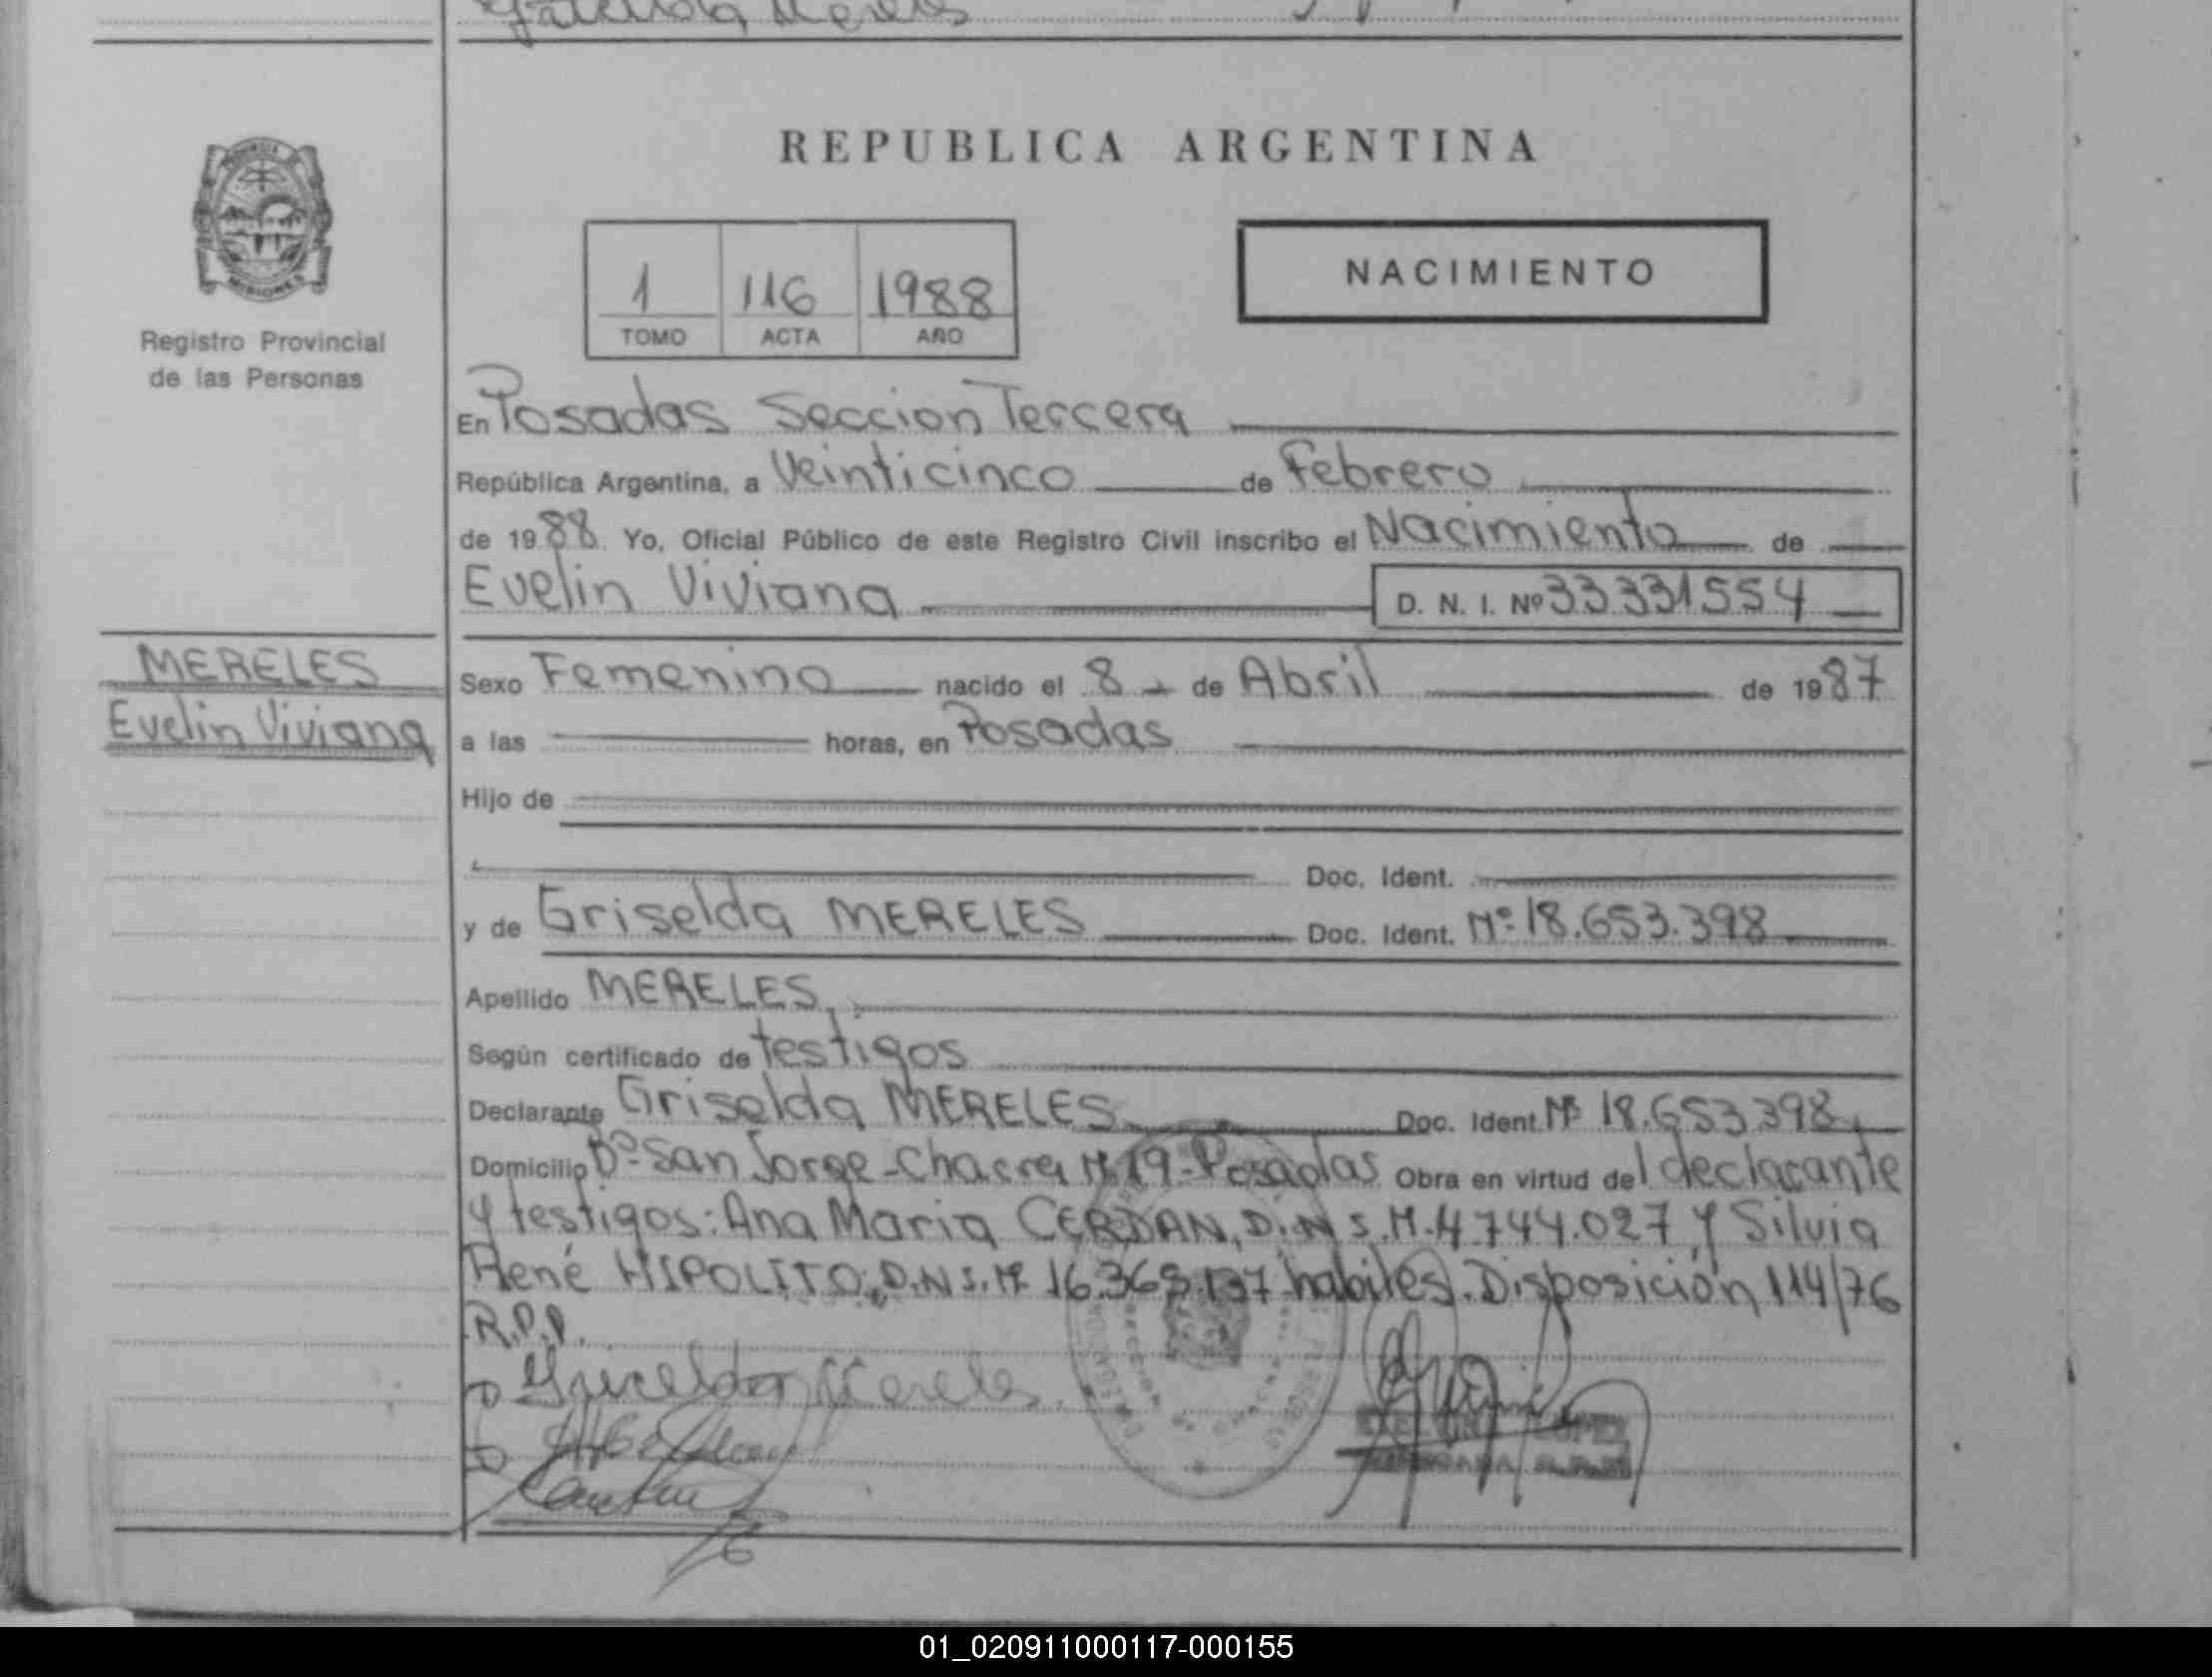 REPUBLICA ARGENTINA
PROVINCIA
MISIONES
Registro Provincial
de las Personas
NACIMIENTO
1 116 1988
TOMO ACTA AÑO
En Posadas Seccion Tercera
República Argentina, a Veinticinco de Febrero
de 1988 Yo, Oficial Público de este Registro Civil inscribo el Nacimiento de
Evelin Viviana D. N. I. Nº 33331554
MERELES
Evelin Viviana
Sexo Femenino nacido el 8 de Abril de 1987
a las horas, en Posadas
Hijo de
Doc. Ident.
y de Griselda MERELES Doc. Ident. Nº 18.653.398
Apellido MERELES
Según certificado de testigos
Declarante Griselda MERELES Doc. Ident. Nº 18.653.398
Domicilio Bº San Jorge - Chacra Nº 19 - Posadas Obra en virtud del declarante
y testigos: Ana Maria CERDAN, D.N.I. Nº 4.744.027 y Silvia
René HIPOLITO, D.N.I. Nº 16.365.137 habiles. Disposición 114/76
R.P.P.
Griselda Mereles
01_020911000117-000155